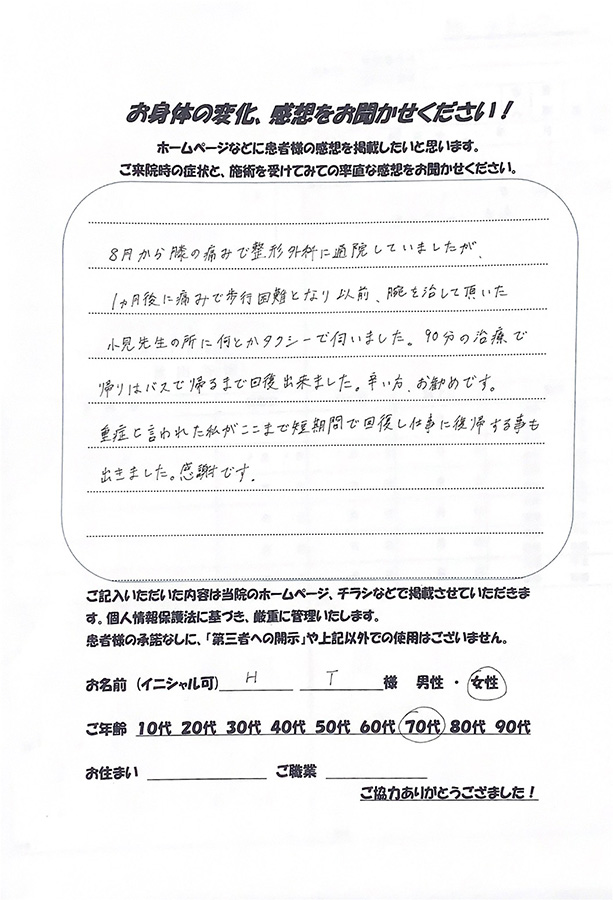 お身体の変化、感想をお聞かせください！
ホームページなどに患者様の感想を掲載したいと思います。
ご来院時の症状と、施術を受けてみての率直な感想をお聞かせください。
8月から膝の痛みで整形外科に通院していましたが、
1ヵ月後に痛みで歩行困難となり以前、腕を治して頂いた
小見先生の所に何とかタクシーで伺いました。90分の治療で
帰りはバスで帰るまで回復出来ました。辛い方、お勧めです。
重症と言われた私がここまで短期間で回復し仕事に復帰する事も
出きました。感謝です.
ご記入いただいた内容は当院のホームページ、チラシなどで掲載させていただきま
す。個人情報保護法に基づき、厳重に管理いたします。
患者様の承諾なしに、「第三者への開示」や上記以外での使用はございません。
お名前（イニシャル可） H T 様 男性 ・ 女性
ご年齢 10代 20代 30代 40代 50代 60代 70代 80代 90代
お住まい ご職業
ご協力ありがとうござました！